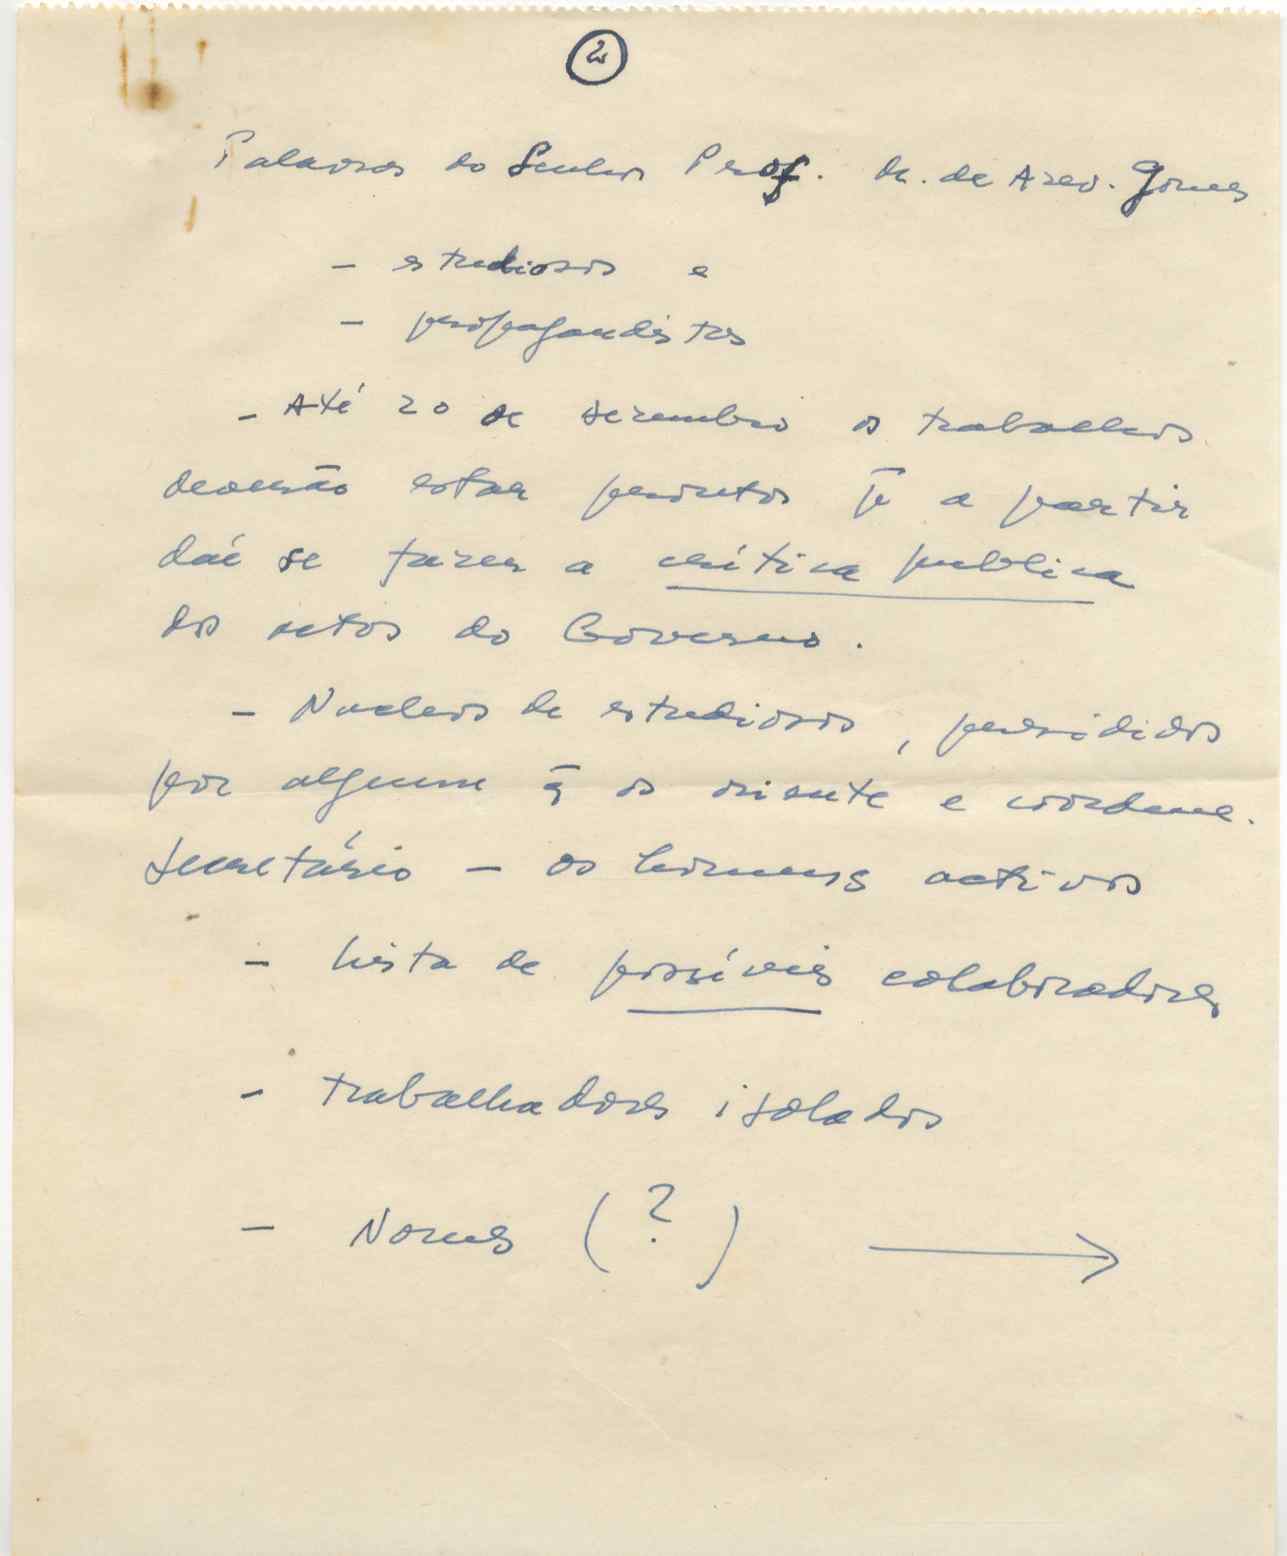 2
Palavras do Senhor Prof. M. de Azev. Gomes
- estudiosos e
- propagandistas
- Até 20 de dezembro os trabalhos
deverão estar prontos p̄ a partir
daí se fazer a crítica publica
dos actos do Governo.
- Nucleos de estudiosos, presididos
por alguem q̄ os oriente e coordene.
Secretário - os homens activos
- Lista de possíveis colaboradores
- trabalhadores isolados
- Nomes (?) →